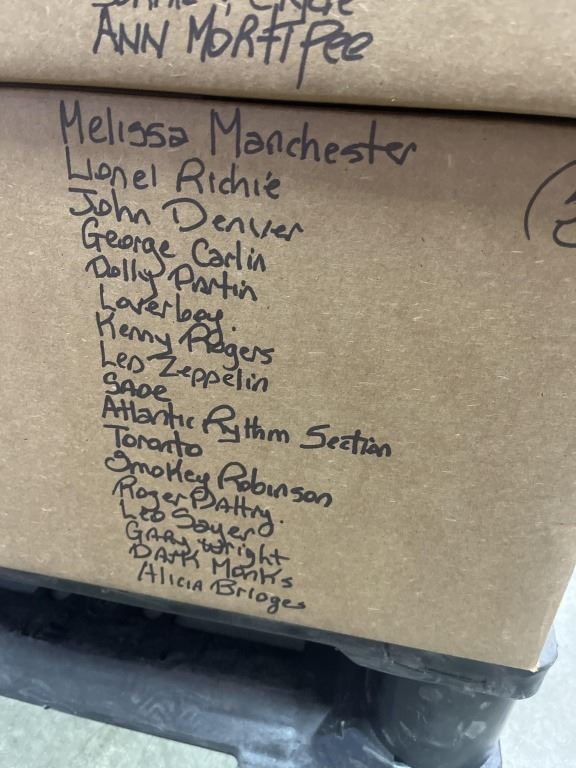 ANN MORTIFEE
Melissa Manchester
Lionel Richie
John Denver
George Carlin
Dolly Partin
Loverboy.
Kenny Rogers
Led Zeppelin
SADE
Atlantic Rythm Section
Toronto
Smokey Robinson
Roger Daltry.
Leo Sayer
GARY Wright
DARK Monks
Alicia Bridges